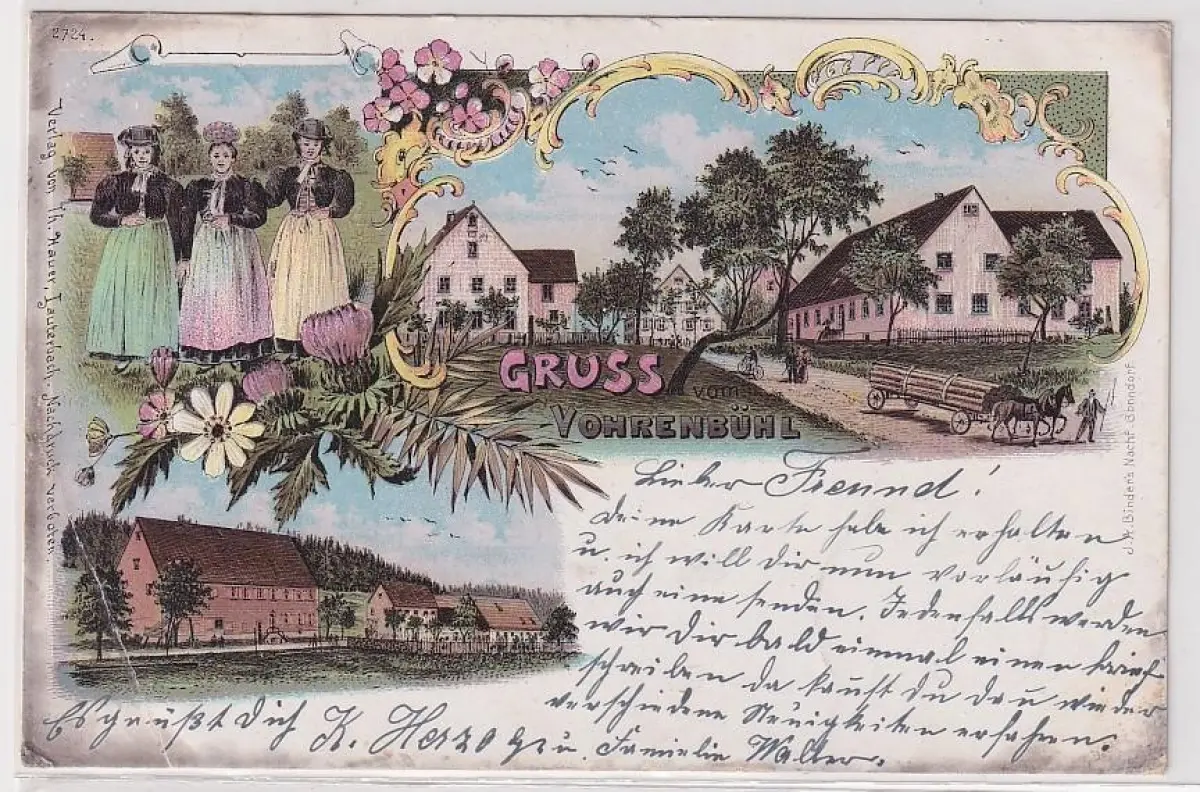 2724.
Verlag von Th. Hauer, Lauterbach. Nachdruck verboten.
GRUSS
vom
VOHRENBÜHL
J. A. Binder's Nachf. Bonndorf.
Lieber Freund!
Deine Karte habe ich erhalten
u. ich will dir nun vorläufig
auch eine senden. Jedenfalls werden
wir Dir bald einmal einen brief
schreiben da kanst du da wieder
verschiedene Neuigkeiten erfahren.
Es grüßt Dich K. Herzog u. Familie Walter.